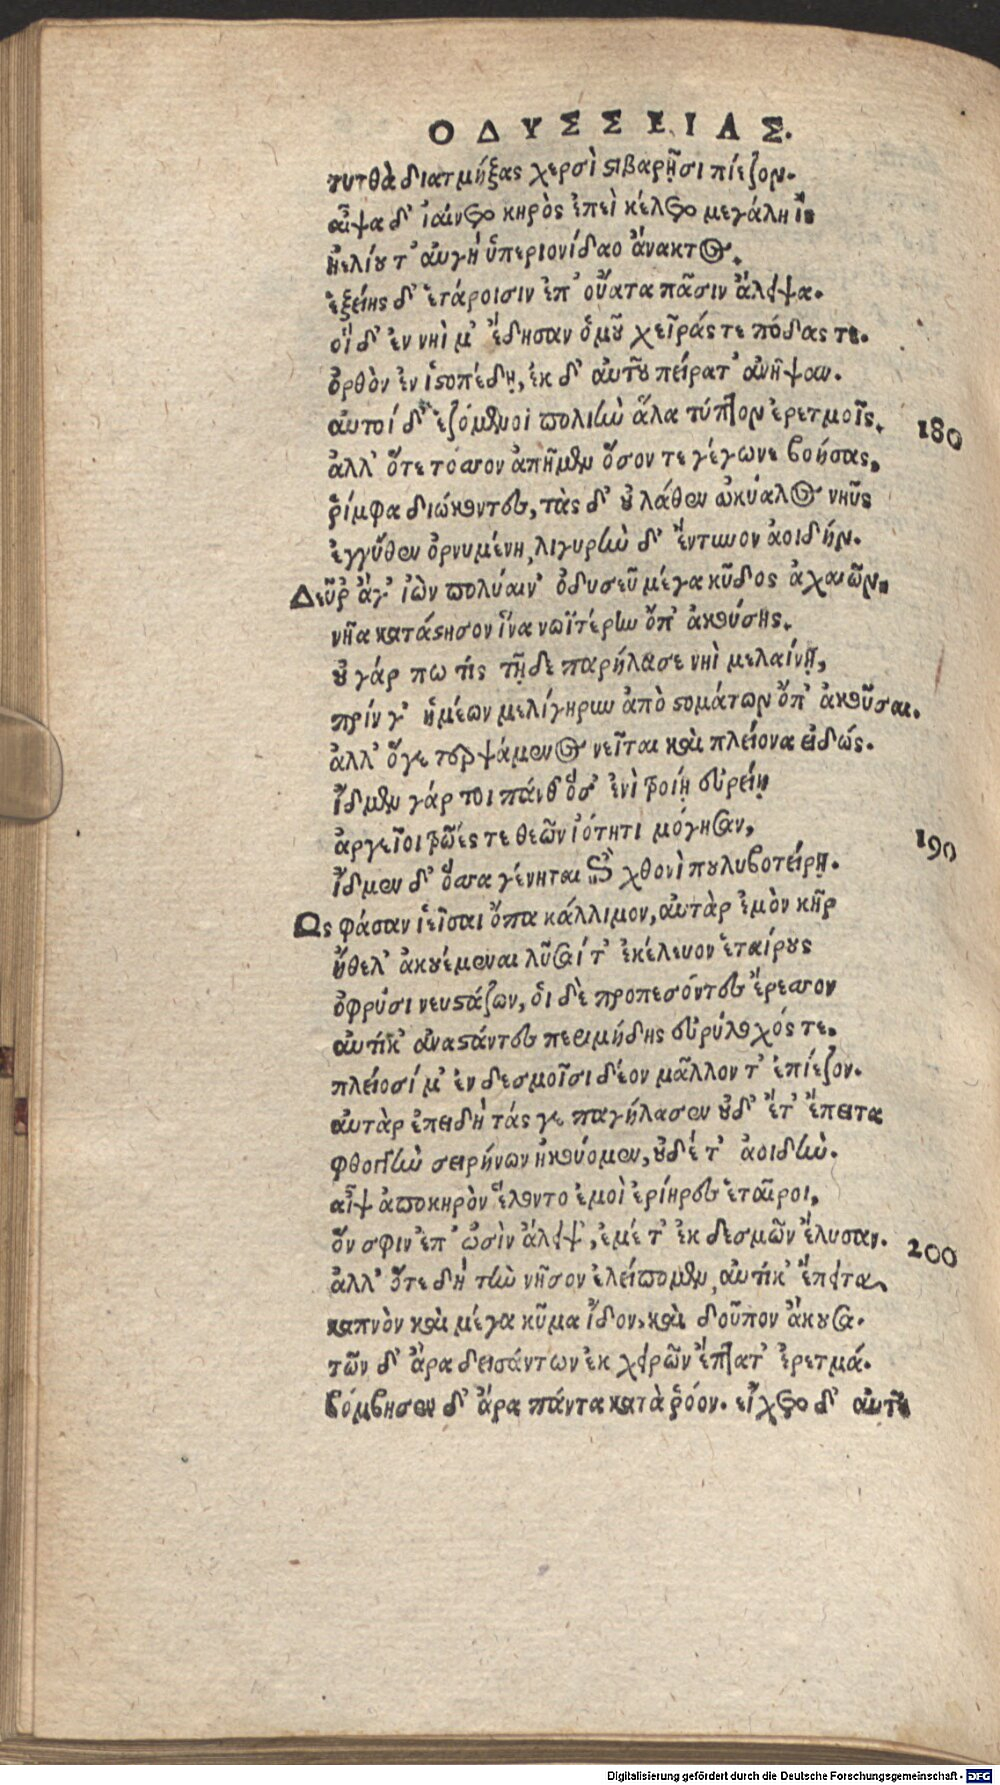 ΟΔΥΣΣΕΙΑΣ.
τυτθὰ διατμήξας χερσὶ στιβαρῇσι πίεζον.
αἶψα δ' ἰαίνετο κηρὸς ἐπεὶ κέλετο μεγάλη ἲς
ἠελίου τ' αὐγὴ ὑπεριονίδαο ἄνακτος.
ἑξείης δ' ἑτάροισιν ἐπ' οὔατα πᾶσιν ἄλειψα.
οἵ δ' ἐν νηΐ μ' ἔδησαν ὁμοῦ χεῖράς τε πόδας τε.
ὀρθὸν ἐν ἱστοπέδῃ, ἐκ δ' αὐτοῦ πείρατ' ἀνῆψαν.
αὐτοί δ' ἑζόμενοι πολιὴν ἅλα τύπτον ἐρετμοῖς.
180
ἀλλ' ὅτε τόσσον ἀπῆμεν ὅσον τε γέγωνε βοήσας.
ῥίμφα διώκοντες, τὰς δ' οὐ λάθεν ὠκύαλος νηῦς
ἐγγύθεν ὀρνυμένη, λιγυρὴν δ' ἔντυνον ἀοιδήν.
Δεῦρ' ἄγ' ἰὼν πολύαιν' ὀδυσεῦ μέγα κῦδος ἀχαιῶν.
νῆα κατάστησον ἵνα νωϊτέρην ὄπ' ἀκούσῃς.
οὐ γάρ πω τίς τῇδε παρήλασε νηῒ μελαίνῃ,
πρίν γ' ἡμέων μελίγηρυν ἀπὸ στομάτων ὄπ' ἀκοῦσαι.
ἀλλ' ὅγε τερψάμενος νεῖται καὶ πλείονα εἰδώς.
ἴδμεν γάρ τοι πάνθ' ὅσ' ἐνὶ τροίῃ εὐρείῃ
ἀργεῖοι τρῶές τε θεῶν ἰότητι μόγησαν,
190
ἴδμεν δ' ὅσσα γένηται ἐπὶ χθονὶ πουλυβοτείρῃ.
Ως φάσαν ἱεῖσαι ὄπα κάλλιμον, αὐτὰρ ἐμὸν κῆρ
ἤθελ' ἀκουέμεναι λῦσαί τ' ἐκέλευον ἑταίρους
ὀφρύσι νευστάζων, οἱ δὲ προπεσόντες ἔρεσσον
αὐτίκ' ἀναστάντες περιμήδης εὐρύλοχός τε.
πλείοσί μ' ἐν δεσμοῖσι δέον μᾶλλον τ' ἐπίεζον.
αὐτὰρ ἐπειδὴ τάς γε παρήλασεν οὐδ' ἔτ' ἔπειτα
φθογγὴν σειρήνων ἠκούομεν, οὐδέ τ' ἀοιδὴν.
αἶψ' ἀπο κηρὸν ἕλοντο ἐμοὶ ἐρίηρες ἑταῖροι,
ὅν σφιν ἐπ' ὠσὶν ἄλειψ', ἐμέ τ' ἐκ δεσμῶν ἔλυσαν.
200
ἀλλ' ὅτε δὴ τὴν νῆσον ἐλείπομεν, αὐτίκ' ἔπειτα
καπνὸν καὶ μέγα κῦμα ἴδον, καὶ δοῦπον ἄκουσα.
τῶν δ' ἄρα δεισάντων ἐκ χειρῶν ἔπτατ' ἐρετμά.
βόμβησεν δ' ἄρα πάντα κατὰ ῥόον. εἴχετο δ' αὐτοῦ
Digitalisierung gefördert durch die Deutsche Forschungsgemeinschaft - DFG